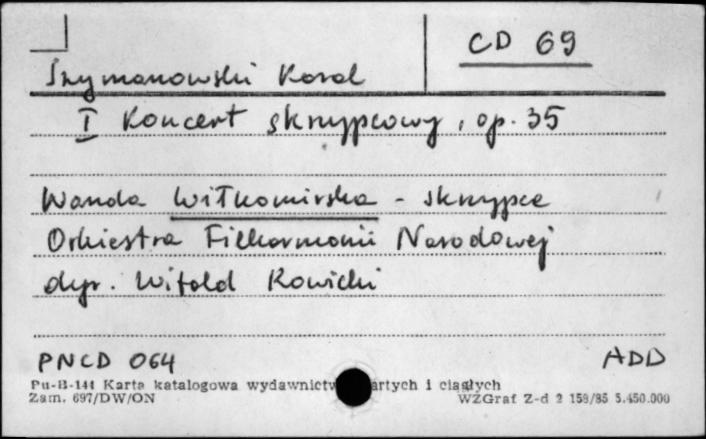 CD 69
Szymanowski Karol
I Koncert skrzypcowy, op. 35
Wanda Wiłkomirska - skrzypce
Orkiestra Filharmonii Narodowej
dyr. Witold Rowicki
PNCD 064 ADD
Pu-B-141 Karta katalogowa wydawnictw artych i ciągłych
Zam. 697/DW/ON WZGraf Z-d 2 158/85 5.450.000